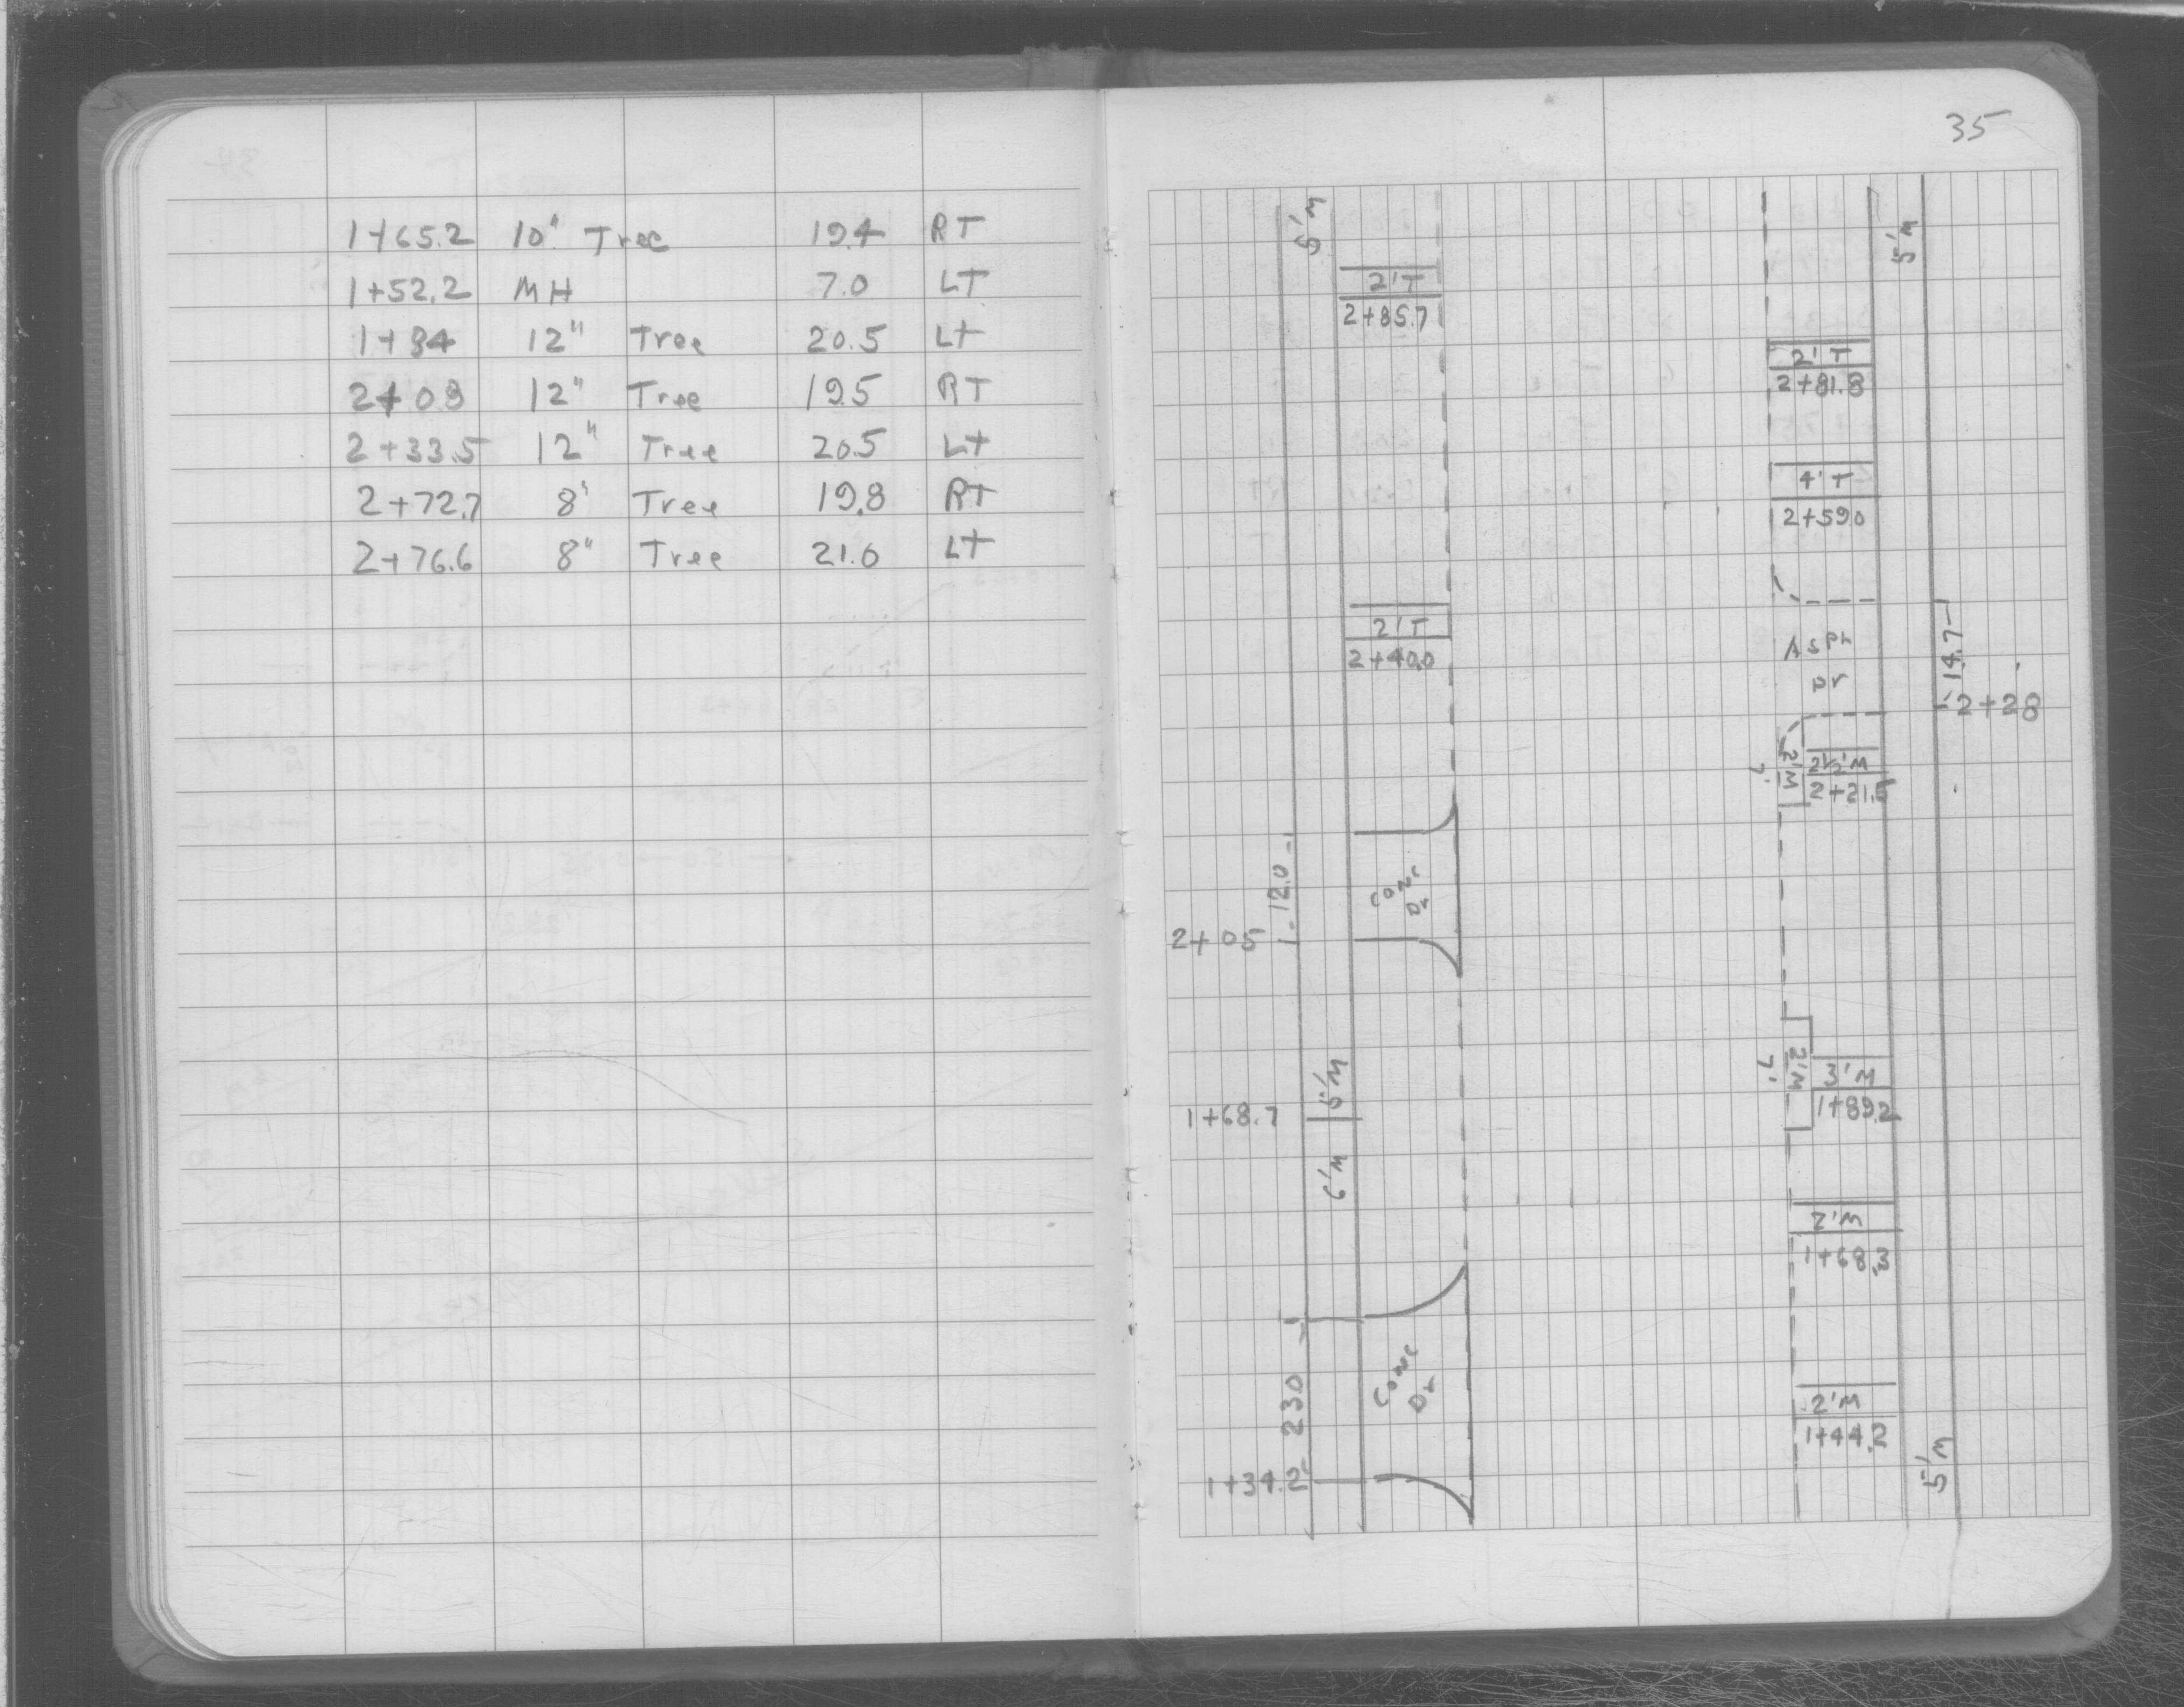 1+65.2 10" Tree 19.4 RT
1+52.2 MH 7.0 LT
1+84 12" Tree 20.5 Lt
2+08 12" Tree 19.5 RT
2+33.5 12" Tree 20.5 Lt
2+72.7 8" Tree 19.8 RT
2+76.6 8" Tree 21.0 Lt
35
5'M
5'M
2'T
2+85.7
2'T
2+81.8
4'T
2+59.0
2'T
2+40.0
Asph
Dr
14.7
2+28
2'M
7'
2½'M
2+21.5
12.0
Conc
Dr
2+05
5'M
2'M
7'
3'M
1+89.2
1+68.7
6'M
2'M
1+68.3
23.0
Conc
Dr
2'M
1+44.2
1+34.2
5'M